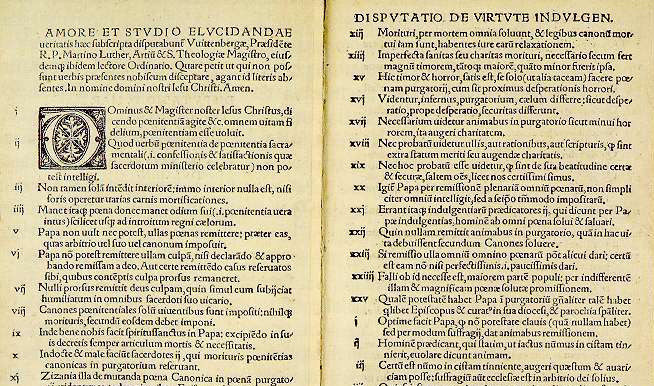 AMORE ET STVDIO ELVCIDANDAE
ueritatis hæc subscripta disputabunť Vuittenbergæ, Præsidēte
R. P. Martino Luther, Artiū & S. Theologiæ Magistro, eius-
dem ibidem lectore Ordinario. Quare petit ut qui non pos-
sunt uerbis præsentes nobiscum disceptare, agant id literis ab-
sentes. In nomine domini nostri Iesu Christi. Amen.
i DOminus & Magister noster Iesus Christus, di-
cendo pœnitentiā agite &c. omnem uitam fi
delium, pœnitentiam esse uoluit.
ij Quod uerbū pœnitentia de pœnitentia sacra
mentali (.i. confessionis & satisfactionis quæ
sacerdotum ministerio celebratur) non po-
test intelligi.
iij Non tamen solā intēdit interiorē; immo interior nulla est, nisi
foris operetur uarias carnis mortificationes.
iiij Manet itaq; pœna donec manet odium sui (.i. pœnitentia uera
intus) scilicet usq; ad introitum regni cælorum.
v Papa non uult nec potest, ullas pœnas remittere; præter eas,
quas arbitrio uel suo uel canonum imposuit.
vj Papa nō potest remittere ullam culpā, nisi declarādo & appro
bando remissam a deo. Aut certe remittēdo casus reseruatos
sibi, quibus contēptis culpa prorsus remaneret.
vij Nulli prorsus remittit deus culpam, quin simul eum subijciat
humiliatum in omnibus sacerdoti suo uicario.
viij Canones pœnitentiales solū uiuentibus sunt impositi; nihilq;
morituris, secundū eosdem debet imponi.
ix Inde bene nobis facit spiritussanctus in Papa; excipiēdo in su-
is decretis semper articulum mortis & necessitatis.
x Indocte & male faciūt sacerdotes ij, qui morituris pœnitētias
canonicas in purgatorium reseruant.
xj Zizania illa de mutanda pœna Canonica in pœnā purgato-
DISPVTATIO DE VIRTVTE INDVLGEN.
xiij Morituri, per mortem omnia soluunt, & legibus canonū mor-
tui iam sunt, habentes iure earū relaxationem.
xiiij Imperfecta sanitas seu charitas morituri, necessario secum fert
magnū timorem, tātoq; maiorē, quāto minor fuerit ipsa.
xv Hic timor & horror, satis est, se solo (ut alia taceam) facere pœ-
nam purgatorij, cum sit proximus desperationis horrori.
xvj Videntur, infernus, purgatorium, cælum differre; sicut despe-
ratio, prope desperatio, securitas differunt.
xvij Necessarium uidetur animabus in purgatorio sicut minui hor
rorem, ita augeri charitatem.
xviij Nec probatū uidetur ullis, aut rationibus, aut scripturis, ꝙ sint
extra statum meriti seu augendæ charitatis.
xix Nec hoc probatū esse uidetur, ꝙ sint de sua beatitudine certæ
& securæ, saltem oēs, licet nos certissimi simus.
xx Igiť Papa per remissionē plenariā omniū pœnarū, non simpli
citer omniū intelligit, sed a seipō tm̄modo impositarū.
xxj Errant itaq; indulgentiarū prædicatores ij, qui dicunt per Pa-
pæ indulgentias, hominē ab omni pœna solui & saluari.
xxij Quin nullam remittit animabus in purgatorio, quā in hac ui-
ta debuissent secundum Canones soluere.
xxiij Si remissio ulla omniū omnino pœnarū pōt alicui dari; certū
est eam nō nisi perfectissimis .i. paucissimis dari.
xxiiij Falli ob id necesse est, maiorem partē populi; per indifferentē
illam & magnificam pœnæ solutæ promissionem.
xxv Qualē potestatē habet Papa ī purgatoriū gñaliter talē habet
qlibet Episcopus & curatꝰ in sua diœcesi, & parochia spāliter.
i Optime facit Papa, ꝙ nō potestate clauis (quā nullam habet)
sed per modum suffragij, dat animabus remissionem.
ij Hominē prædicant, qui statim, ut iactus nūmus in cistam tin-
nierit, euolare dicunt animam.
iij Certū est nūmo in cistam tinniente, augeri quæstum & auari-
ciam posse; suffragiū aūt ecclesiæ in arbitrio dei solius est.